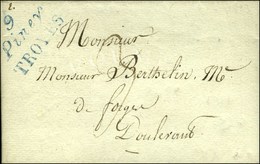 9
Piney
TROYES
Monsieur
Monsieur Berthelin, Me
de forges
Doulevant